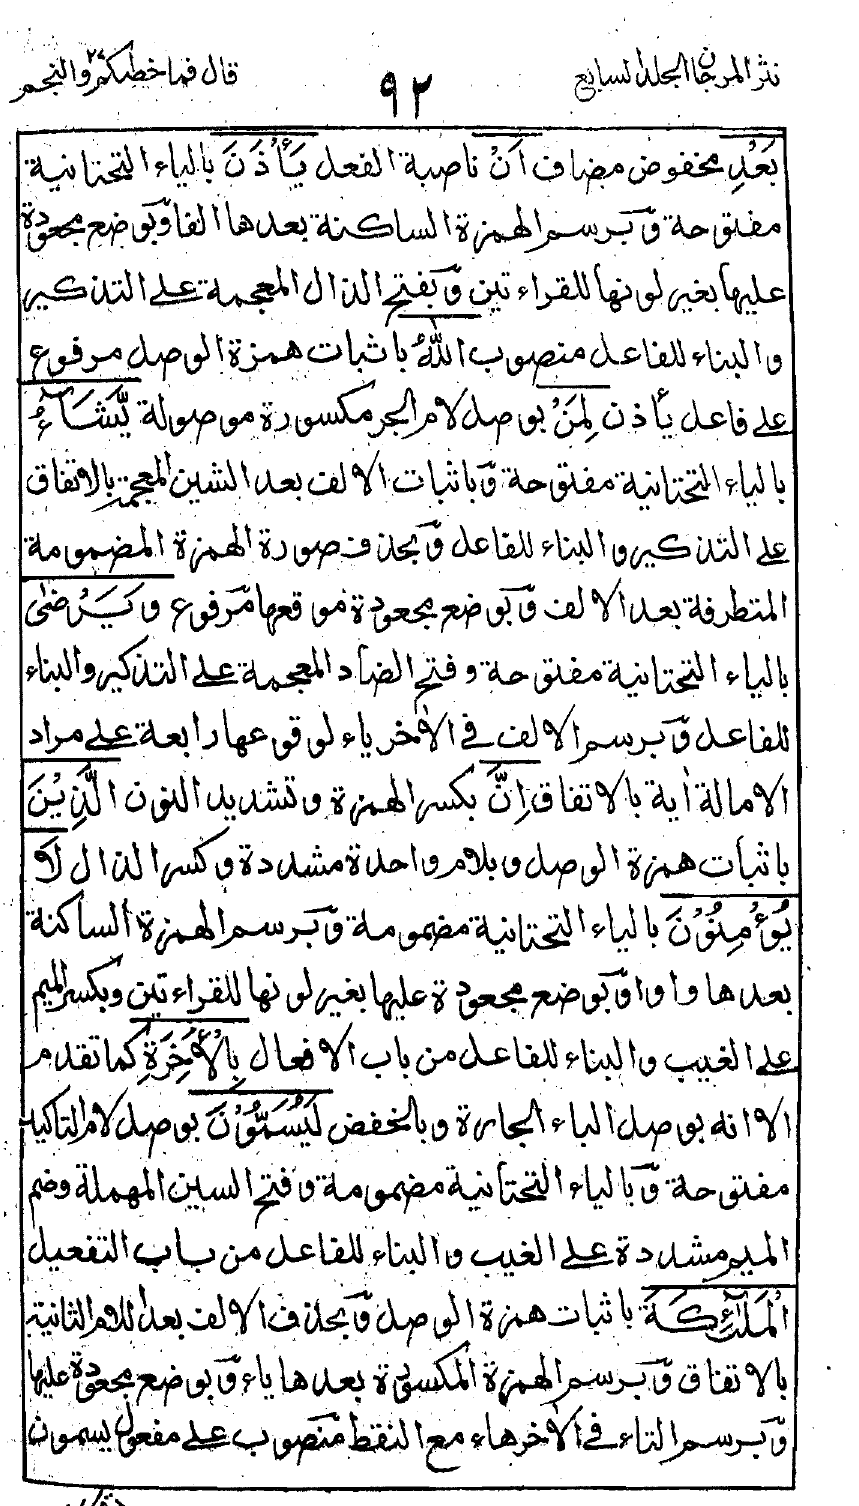 نثر المرجان الجلد السابع
٩٢
قال فما خطبكم ٢٧ والنجم
بَعْدِ مخفوض مضاف اَنْ ناصبة الفعل يَأْذَنَ بالياء التحتانية
مفتوحة وّبرسم الهمزة الساكنة بعدها الفا وّبوضع مجعودة
عليها بغير لونها للقراءتين وّبفتح الذال المعجمة على التذكير
والبناء للفاعل منصوب اللهُ باثبات همزة الوصل مرفوع
على فاعل يأذن لِمَنْ بوصل لام الجر مكسورة موصولة يَّشَآءُ
بالياء التحتانية مفتوحة وّباثبات الالف بعد الشين المعجمة بالاتفاق
على التذكير والبناء للفاعل وّبحذف صورة الهمزة المضمومة
المتطرفة بعد الالف وّبوضع مجعودة موقعها مّرفوع وَيَرْضٰى
بالياء التحتانية مفتوحة وفتح الضاد المعجمة على التذكير والبناء
للفاعل وّبرسم الالف في الاٰخر ياء لوقوعها رابعة على مراد
الامالة اٰية بالاتفاق اِنَّ بكسر الهمزة وتشديد النون الَّذِيْنَ
باثبات همزة الوصل وبلام واحدة مشددة وكسر الذال لَا
يُؤْمِنُوْنَ بالياء التحتانية مضمومة وّبرسم الهمزة الساكنة
بعدها واوا وّبوضع مجعودة عليها بغير لونها للقراءتين وبكسر الميم
على الغيب والبناء للفاعل من باب الافعال بِالْاٰخِرَةِ كما تقدم
الا انه بوصل الباء الجارة وبالخفض لَيُسَمُّوْنَ بوصل لام التاكيد
مفتوحة وّبالياء التحتانية مضمومة وفتح السين المهملة وضم
الميم مشددة على الغيب والبناء للفاعل من باب التفعيل
الْمَلٰٓئِكَةَ باثبات همزة الوصل وّبحذف الالف بعد اللام الثانية
بالاتفاق وّبرسم الهمزة المكسورة بعدها ياء وّبوضع مجعودة عليها
وّبرسم التاء في الاٰخر هاء مع النقط منصوب على مفعول يسمون